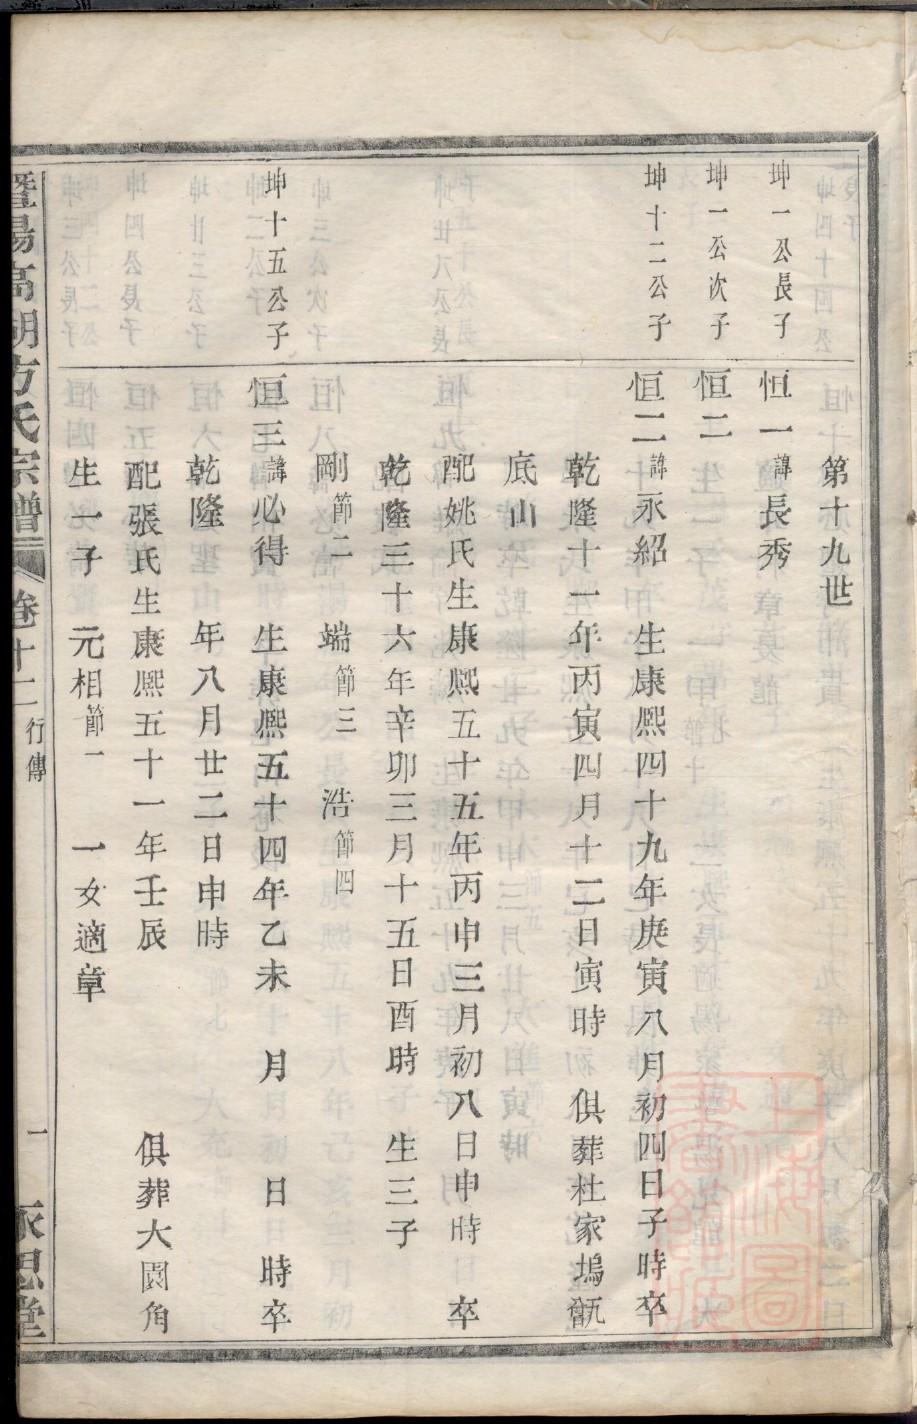 第十九世
坤一公長子
恒一 諱長秀
坤一公次子
恒二
坤十二公子
恒二 諱永紹 生康熙四十九年庚寅八月初四日子時卒
乾隆十一年丙寅四月十二日寅時 俱葬杜家塢甑
底山
配姚氏生康熙五十五年丙申三月初八日申時卒
乾隆三十六年辛卯三月十五日酉時 生三子
剛節二 端節三 浩節四
坤十五公子
恒三 諱必得 生康熙五十四年乙未 月 日 時卒
乾隆 年八月廿二日申時
配張氏生康熙五十一年壬辰 俱葬大園角
生一子 元相節一 一女適章
暨陽高湖方氏宗譜 卷十二 行傳 一 永思堂
上海圖書館藏